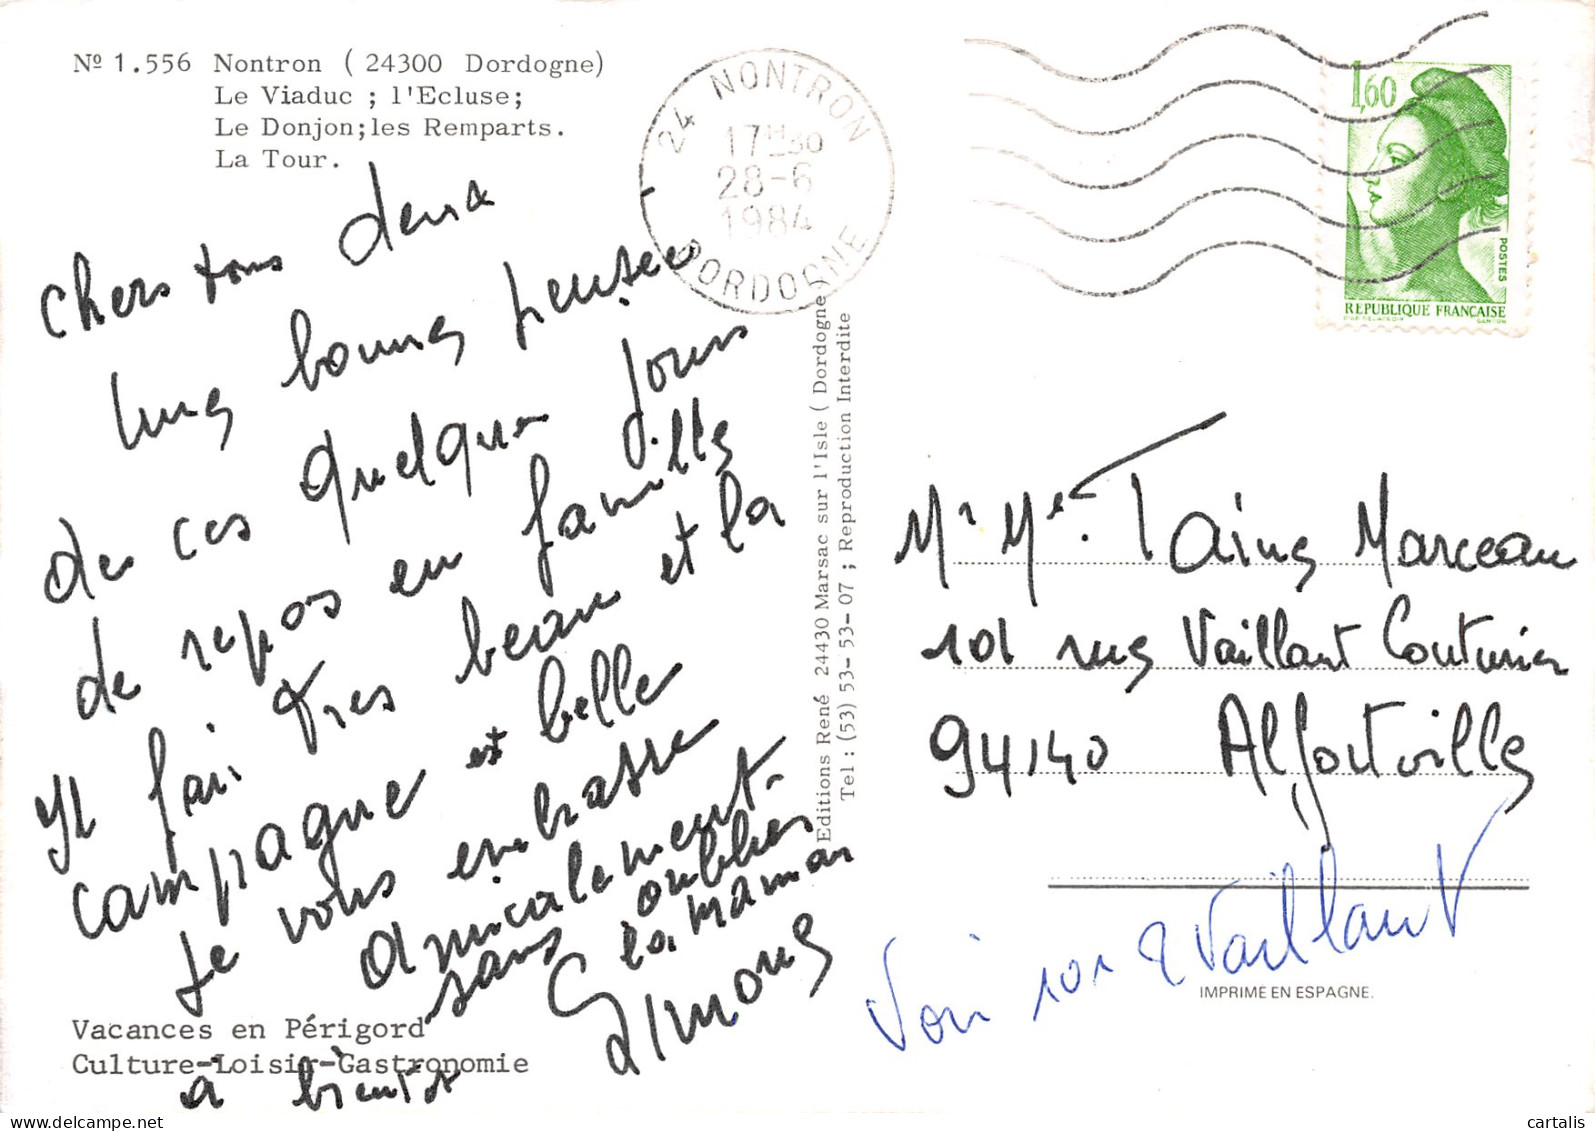 Nº 1.556 Nontron ( 24300 Dordogne)
Le Viaduc ; l'Ecluse;
Le Donjon;les Remparts.
La Tour.
24 NONTRON
17H30
28-6
1984
DORDOGNE
1,60
POSTES
REPUBLIQUE FRANÇAISE
Chers tous deux
Une bonne pensée
de ces quelques jours
de repos en famille
Il fait très beau et la
campagne est belle
Je vous embrasse
amicalement.
sans oublier
la maman
Simone
à bientôt
Editions René 24430 Marsac sur l'Isle ( Dordogne )
Tel : (53) 53- 53- 07 ; Reproduction Interdite
Mr Me. Taine Marceau
101 rue Vaillant Couturier
94140 Alfortville
Voir 101 R Vaillant
IMPRIME EN ESPAGNE.
Vacances en Périgord
Culture-Loisir-Gastronomie
www.delcampe.net
cartalis